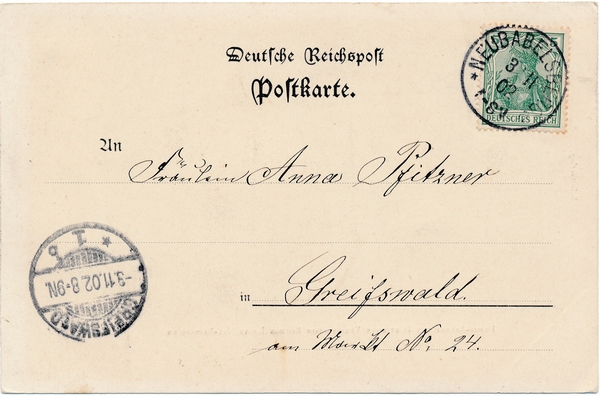 Deutsche Reichspost
Postkarte.
5
NEUBABELSB
3 11
02
DEUTSCHES REICH
An
Fräulein Anna Pfitzner
in Greifswald.
am Markt No. 24.
* 1 b
-3.11.02.8-9N
GREIFSWALD